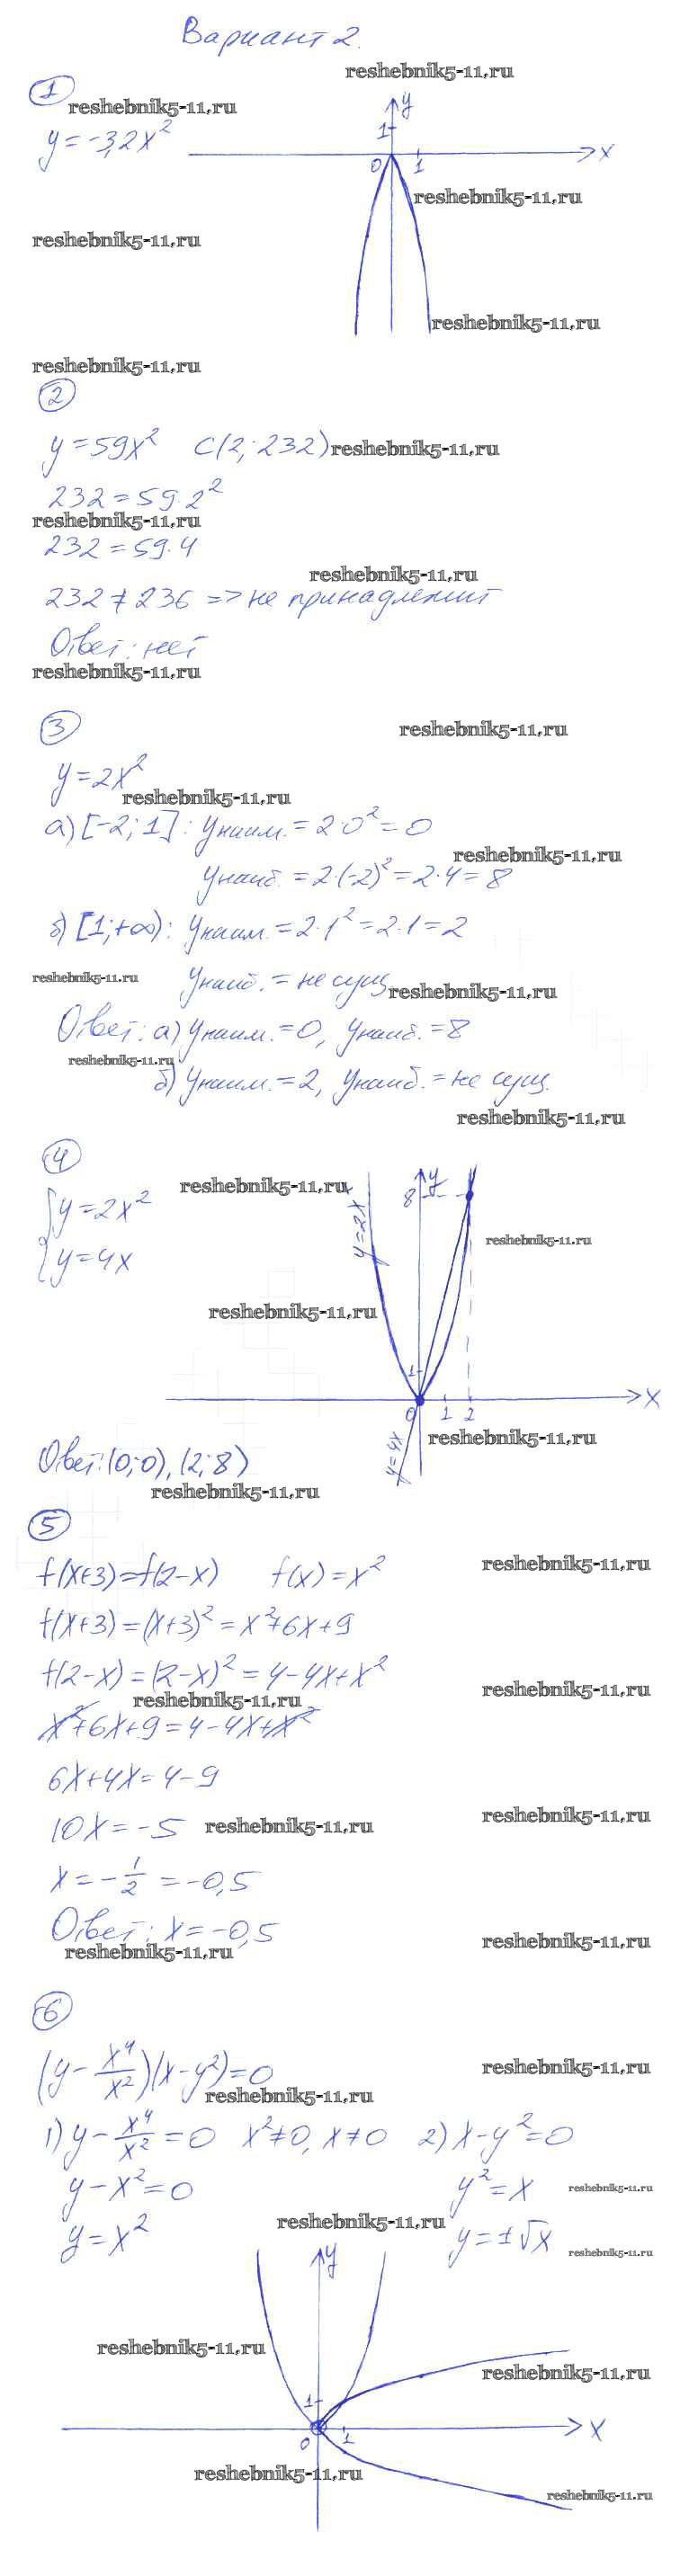 Вариант 2.
reshebnik5-11.ru
1
reshebnik5-11.ru
y = -3,2x²
y
1
0
1
x
reshebnik5-11.ru
reshebnik5-11.ru
reshebnik5-11.ru
reshebnik5-11.ru
2
y = 59x² C(2; 232)
reshebnik5-11.ru
232 = 59·2²
reshebnik5-11.ru
232 = 59·4
reshebnik5-11.ru
232 ≠ 236 => не принадлежит
Ответ: нет
reshebnik5-11.ru
3
reshebnik5-11.ru
y = 2x²
reshebnik5-11.ru
а) [-2; 1]: yнаим. = 2·0² = 0
reshebnik5-11.ru
yнаиб. = 2·(-2)² = 2·4 = 8
б) [1; +∞): yнаим. = 2·1² = 2·1 = 2
reshebnik5-11.ru
yнаиб. = не сущ.
reshebnik5-11.ru
Ответ: а) yнаим. = 0, yнаиб. = 8
reshebnik5-11.ru
б) yнаим. = 2, yнаиб. = не сущ.
reshebnik5-11.ru
4
reshebnik5-11.ru
{y = 2x²
{y = 4x
y
8
y = 2x
reshebnik5-11.ru
reshebnik5-11.ru
1
0
1
2
x
y = 4x
reshebnik5-11.ru
Ответ: (0; 0), (2; 8)
reshebnik5-11.ru
5
reshebnik5-11.ru
f(x+3) = f(2-x) f(x) = x²
f(x+3) = (x+3)² = x²+6x+9
f(2-x) = (2-x)² = 4-4x+x²
reshebnik5-11.ru
reshebnik5-11.ru
x²+6x+9 = 4-4x+x²
6x+4x = 4-9
10x = -5
reshebnik5-11.ru
reshebnik5-11.ru
x = -1/2 = -0,5
Ответ: x = -0,5
reshebnik5-11.ru
reshebnik5-11.ru
6
(y - x⁴/x²)(x-y²) = 0
reshebnik5-11.ru
reshebnik5-11.ru
1) y - x⁴/x² = 0 x² ≠ 0, x ≠ 0 2) x-y² = 0
y - x² = 0 y² = x
reshebnik5-11.ru
reshebnik5-11.ru
y = x² y = ±√x
reshebnik5-11.ru
y
reshebnik5-11.ru
reshebnik5-11.ru
1
0
1
x
reshebnik5-11.ru
reshebnik5-11.ru